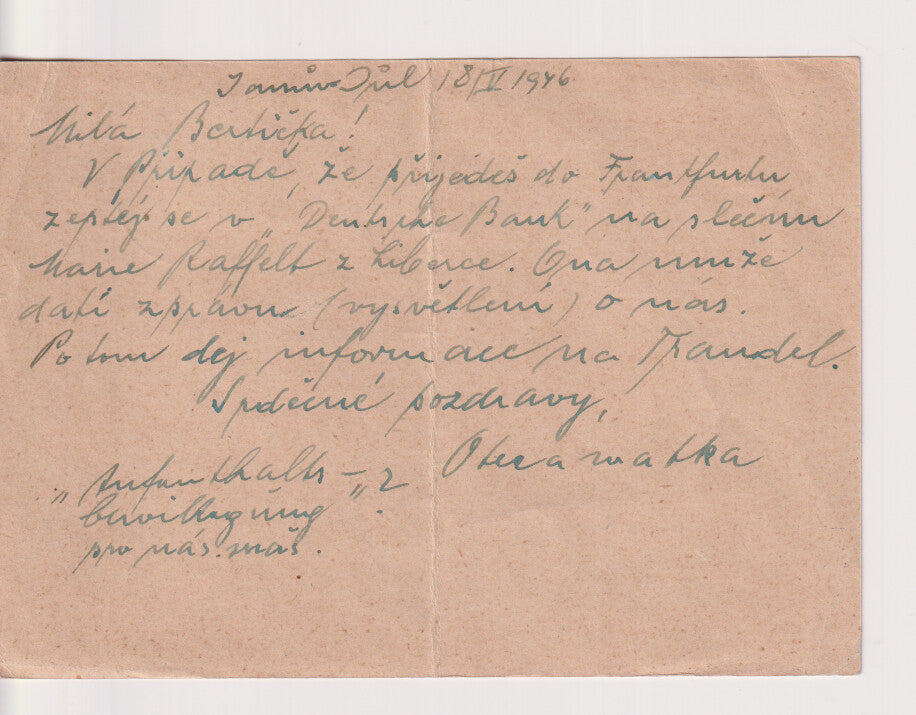 18/V 1946
Milá Bertička!
V Připadě, že přijedeš do Frantfurtu,
zeptej se v „Deutsche Bank" na slečnu
Marie Raffelt z Liberce. Ona muže
dati zprávu (vysvětlení) o nás.
Potom dej informace na Trandel.
Srdečné pozdravy,
Otec a matka
„Aufenthalts-
bewilligung" ?
pro nás máš.